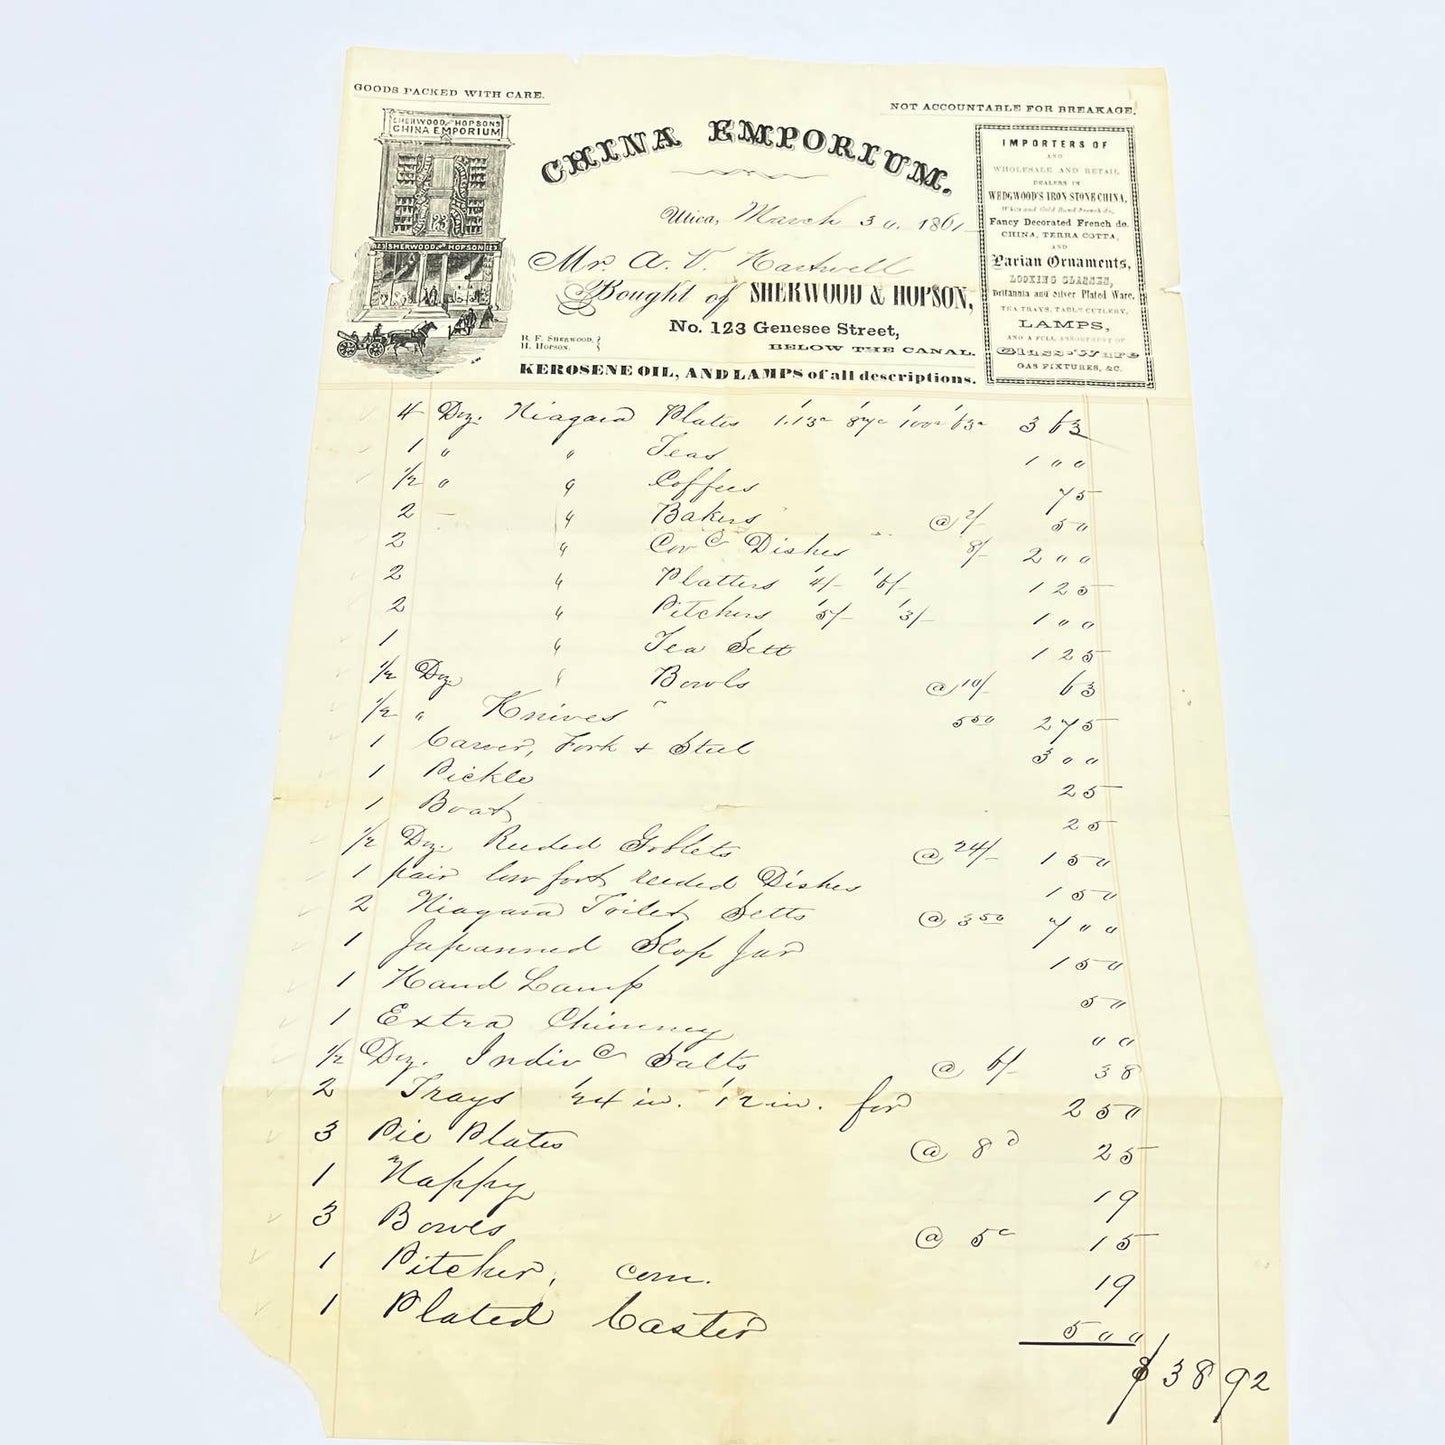 GOODS PACKED WITH CARE.
NOT ACCOUNTABLE FOR BREAKAGE.
SHERWOOD AND HOPSON'S
CHINA EMPORIUM
123 SHERWOOD AND HOPSON 123
CHINA EMPORIUM.
Utica, March 30, 1861
Mr. A. V. Hartwell
Bought of SHERWOOD & HOPSON,
No. 123 Genesee Street,
BELOW THE CANAL.
R. F. SHERWOOD,
H. HOPSON.
KEROSENE OIL, AND LAMPS of all descriptions.
IMPORTERS OF
AND
WHOLESALE AND RETAIL
DEALERS IN
WEDGWOOD'S IRON STONE CHINA,
White and Gold Band French do,
Fancy Decorated French do.
CHINA, TERRA COTTA,
AND
Parian Ornaments,
LOOKING GLASSES,
Britannia and Silver Plated Ware,
TEA TRAYS, TABLE CUTLERY,
LAMPS,
AND A FULL ASSORTMENT OF
Glass-Ware
GAS FIXTURES, &C.
4 Doz. Niagara Plates 1/1.13c 1/87c 1/100c 1/63c 3 63
1 " " Teas 1 00
1/2 " " Coffees 75
2 " Bakers @ 2/- 50
2 " Covd Dishes 8/- 2 00
2 " Platters 1/4/- 1/6/- 1 25
2 " Pitchers 1/5/- 1/3/- 1 00
1 " Tea Sett 1 25
1/2 Doz " Bowls @ 10/- 63
1/2 " Knives 5 50 2 75
1 Carver, Fork + Steel 3 00
1 Pickle 25
1 Boat 25
1/2 Doz. Reeded Goblets @ 24/- 1 50
1 pair low foot reeded Dishes 1 50
2 Niagara Toilet Setts @ 3 50 7 00
1 Japanned Slop Jar 1 50
1 Hand Lamp 50
1 Extra Chimney 00
1/2 Doz. Indivd Salts @ 6/- 38
2 Trays 1/24 in. 1/12 in. for 2 50
3 Pie Plates @ 8d 25
1 Nappy 19
3 Bowls @ 5c 15
1 Pitcher, com. 19
1 Plated Caster 5 00
$38 92